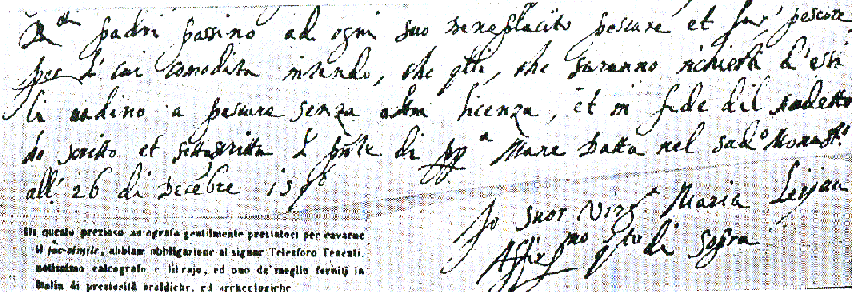 padri possino ad ogni suo beneplacito pescare et far pescare
per la cui comodita intendo, che qlli, che saranno richiesti d'essi
li vadino a pescare senza altra licenza, et in fede del sudetto
ho scritto et sottoscritta la pnte di pp.a Mane Datta nel sud.o Monast.o
all' 26 di Decēbre 159
Io Suor Virg.a Maria Leyva
Affer.mo qto di sopra
Di questo prezioso autografo gentilmente prestatoci per cavarne
il fac-simile, abbiam obbligazione al signor Telesforo Tenenti,
notissimo calcografo e libraio, ed uno de' meglio forniti in
Italia di preziosità araldiche, ed archeologiche